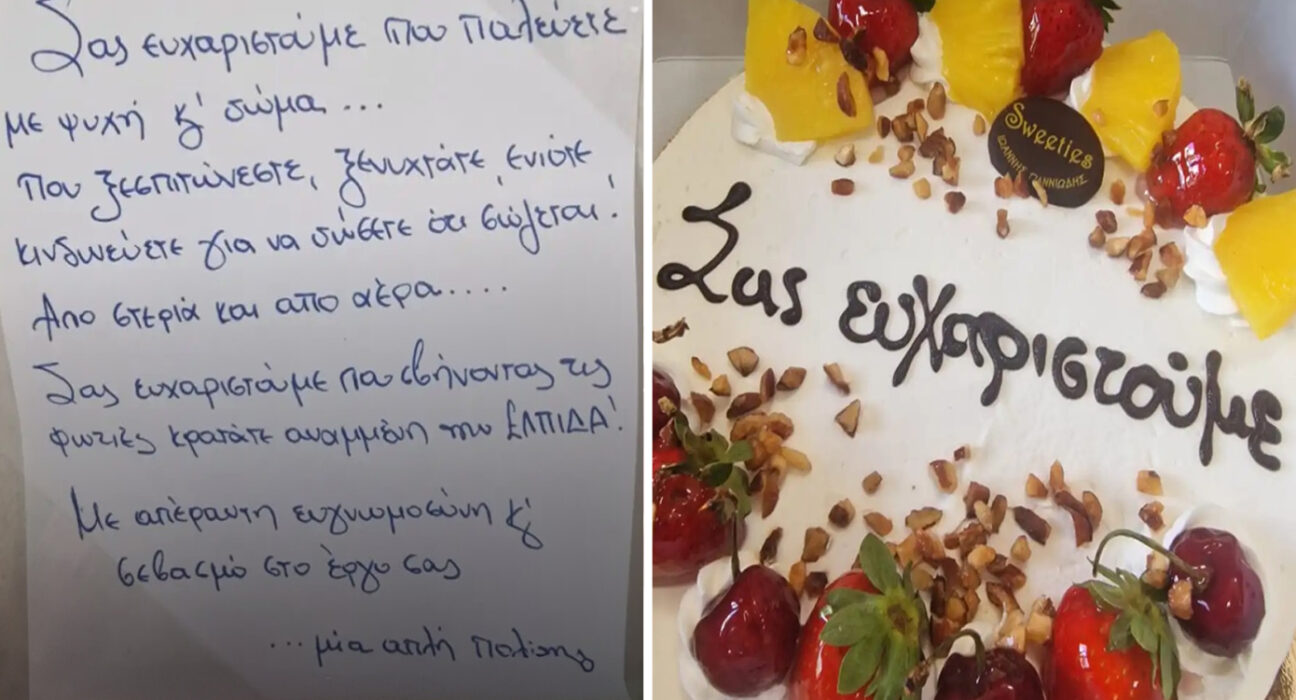 Σας ευχαριστούμε που παλεύετε
με ψυχή κ' σώμα ...
που ξεσπιτώνεστε, ξενυχτάτε, ενίοτε
κινδυνεύετε για να σώσετε ότι σώζεται!
Απο στεριά και απο αέρα....
Σας ευχαριστούμε που σβήνοντας τις
φωτιές κρατάτε αναμμένη την ΕΛΠΙΔΑ!
Με απέραντη ευγνωμοσύνη κ'
σεβασμό στο έργο σας
... μία απλή πολίτης
Sweeties
ΙΩΑΝΝΗΣ ΓΙΑΝΝΙΩΔΗΣ
Σας ευχαριστούμε